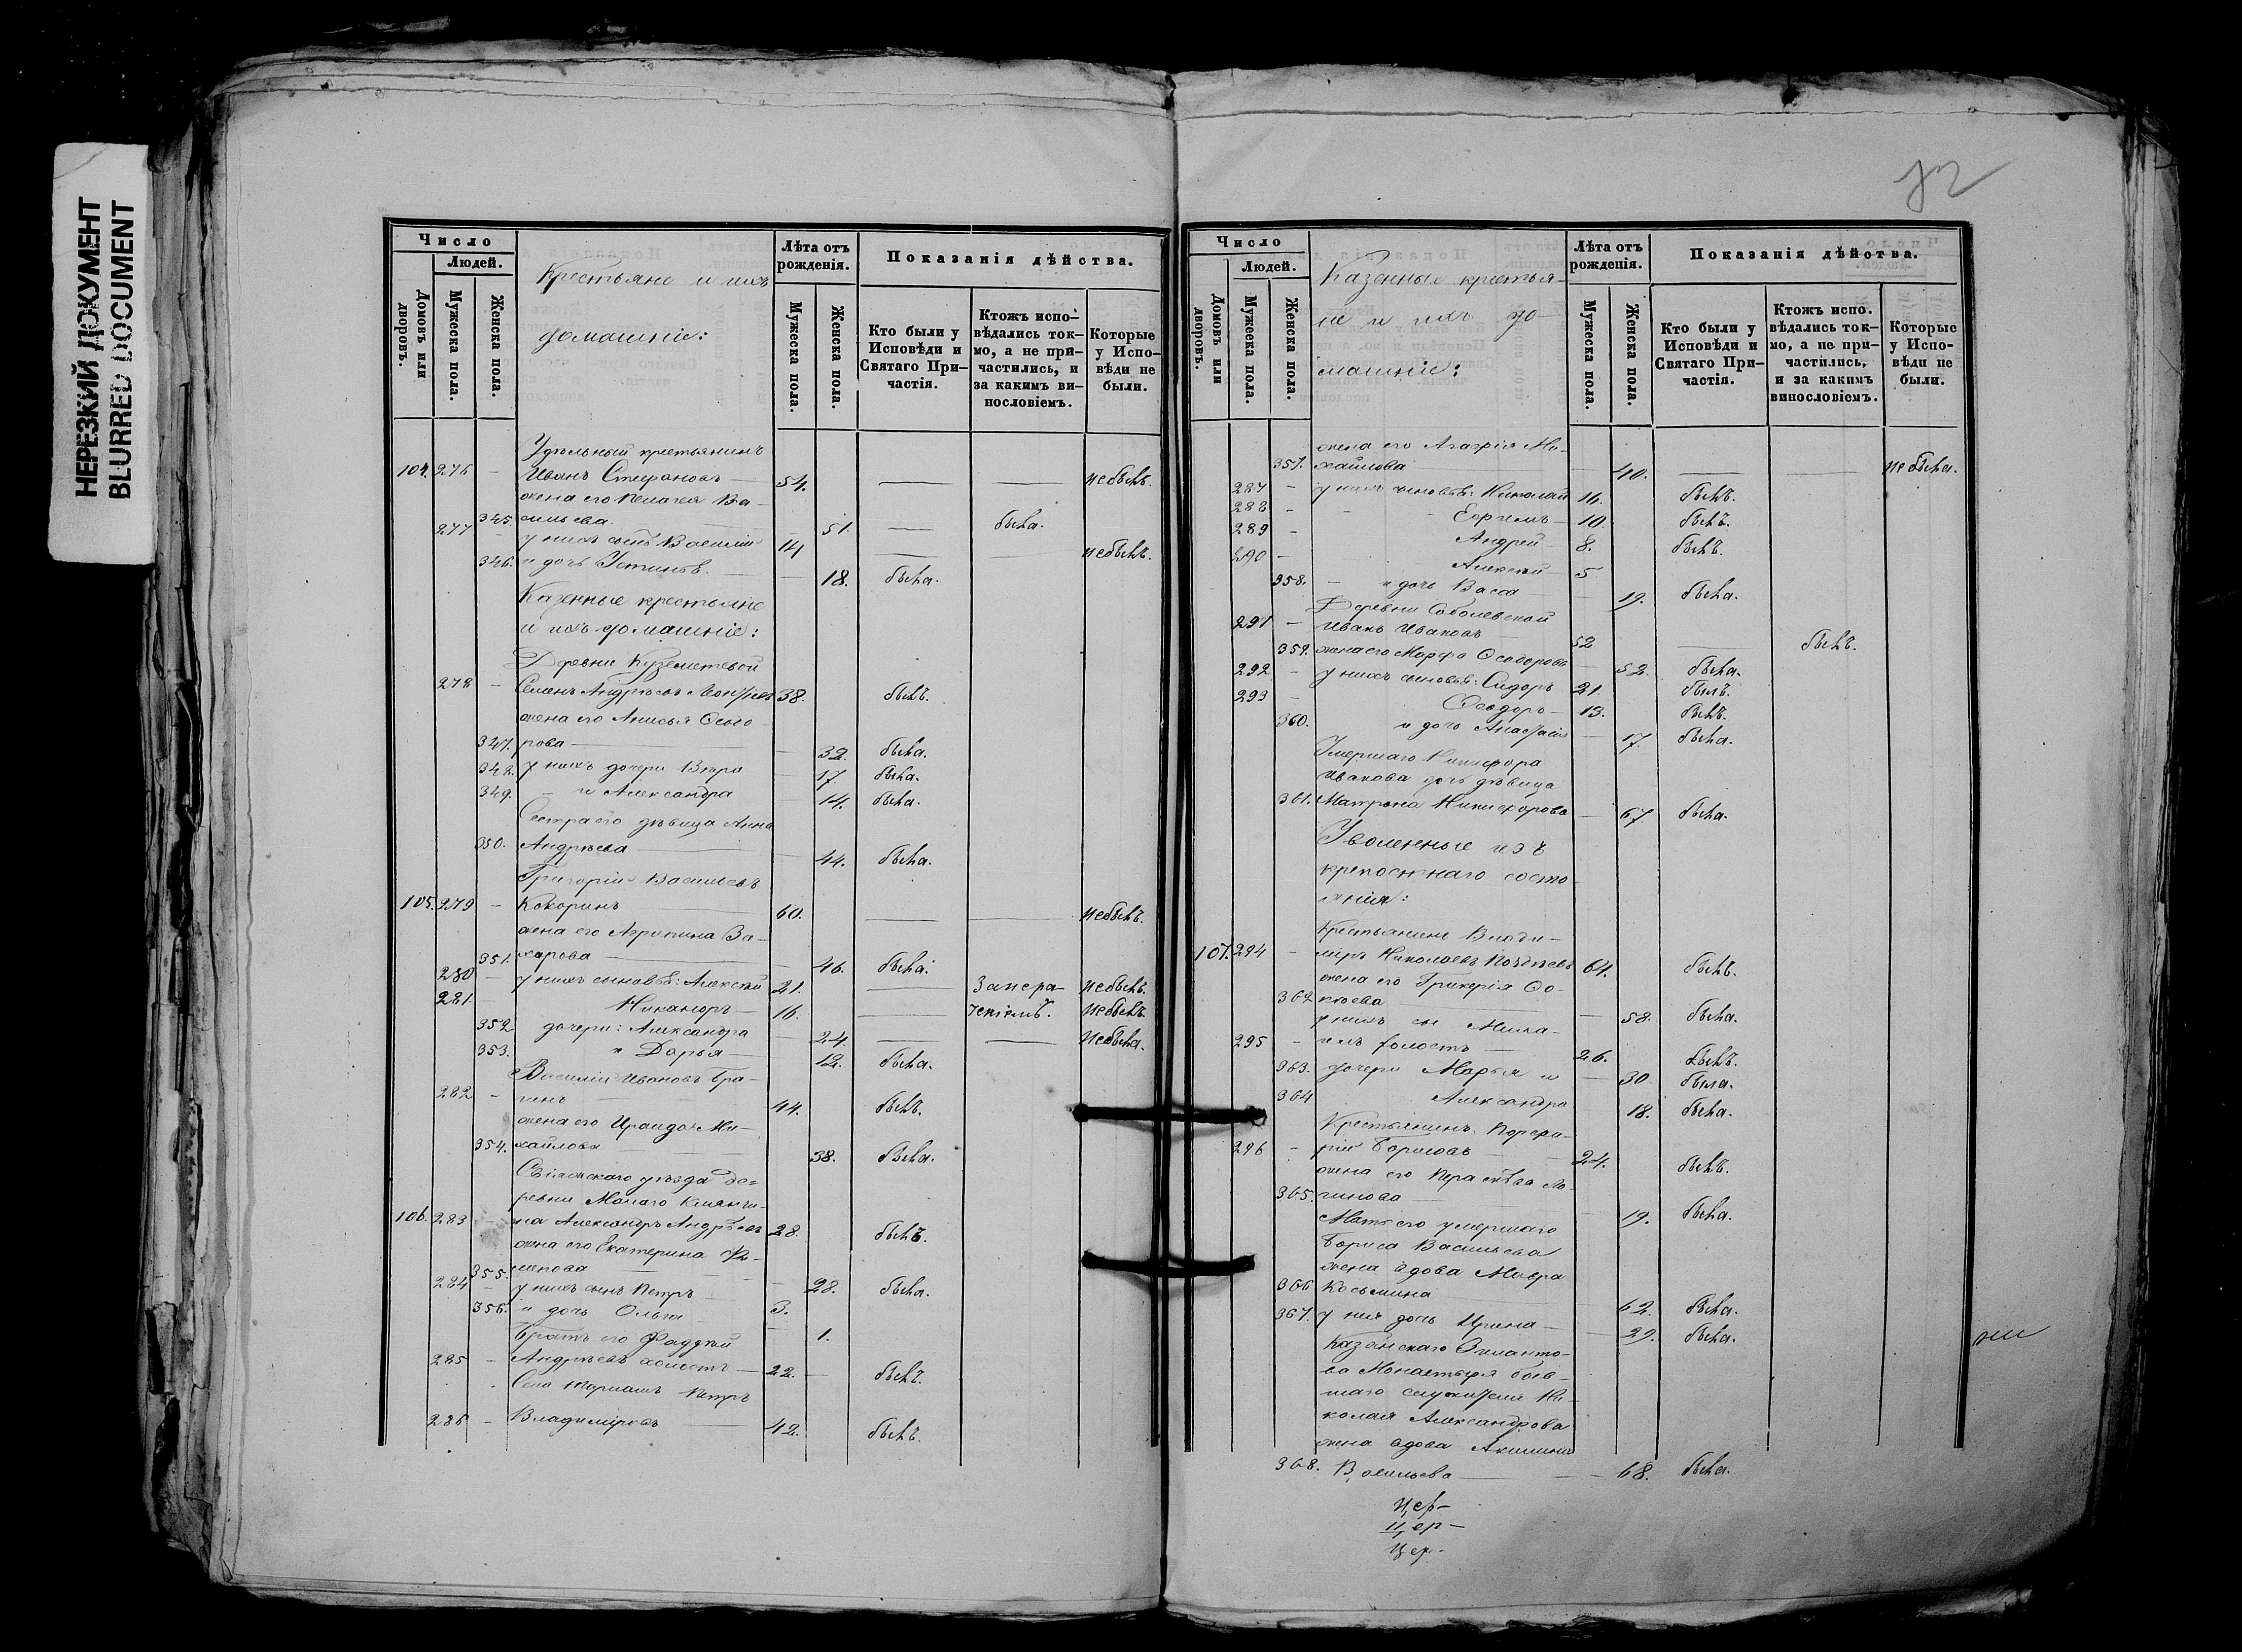 НЕРЕЗКИЙ ДОКУМЕНТ
BLURRED DOCUMENT
Число
Людей.
Домовъ или дворовъ.
Мужеска пола.
Женска пола.
Крестьяне и ихъ
домашніе:
Лѣта отъ рожденія.
Мужеска пола.
Женска пола.
Показанія дѣйства.
Кто были у Исповѣди и Святаго Причастія.
Ктожъ исповѣдались токмо, а не причастились, и за какимъ винословіемъ.
Которые у Исповѣди не были.
Удѣльный крестьянинъ
104. 276 - Иванъ Стефановъ 54. не былъ.
жена его Пелагея Ва-
345. сильева 51. была.
277 - у нихъ сынъ Василій 14 не былъ.
346. и дочь Устинья 18. была.
Казенные крестьяне
и ихъ домашніе:
Деревни
278 - Семенъ Андреевъ 38. былъ.
жена его Анисья Ѳеодо-
347. рова 32. была.
348. у нихъ дочери Вѣра 17. была.
349. и Александра 14. была.
Сестра его дѣвица Анна
350. Андреева 44. была.
Григорій Васильевъ
105. 279 - Кокоринъ 60. не былъ.
жена его Агрипина За-
351. харова 46. была.
280 - у нихъ сыновья: Алексѣй 21. не былъ.
281. - Никаноръ 16. не былъ.
352 дочери: Александра 24. не была.
353. и Дарья 12. была.
Василій Ивановъ Бра-
282 - гинъ 44. былъ.
жена его Ираида Ми-
354. хайлова 38. была.
Свіяжскаго уѣзда де-
ревни Малаго
106. 283 - Александръ Андреевъ 28. былъ.
жена его Екатерина
355. 28. была.
284 - у нихъ сынъ Петръ 3.
356. и дочь Ольга 1.
Братъ его Фаддей
285 - Андреевъ холостъ 22. былъ.
Села Петръ
286 - Владиміровъ 42. былъ.
72
Число
Людей.
Домовъ или дворовъ.
Мужеска пола.
Женска пола.
Казенные крестья-
не и ихъ до-
машніе:
Лѣта отъ рожденія.
Мужеска пола.
Женска пола.
Показанія дѣйства.
Кто были у Исповѣди и Святаго Причастія.
Ктожъ испо. вѣдались токмо, а не причастились, и за какимъ винословіемъ.
Которые у Исповѣди не были.
жена его Агафія Ми-
357. хайлова 40. не была.
287 - у нихъ сыновья: Николай 16. былъ.
288 - Ефимъ 10. былъ.
289 - Андрей 8. былъ.
290 - Алексѣй 5
358. и дочь Васса 19. была.
Деревни Соболевской
291 - Иванъ Ивановъ 52 былъ.
359. жена его Марфа Ѳеодорова 52. была.
292 - у нихъ сыновья: Сидоръ 21. былъ.
293 - Ѳеодоръ 13. былъ.
360. и дочь Анастасія 17. была.
Умершаго Никифора
Иванова дочь дѣвица
361. Матрона Никифорова 67. была.
Уволенные изъ
крепостнаго состо-
янія:
Крестьянинъ Влади-
107. 294 - міръ Николаевъ 64. былъ.
жена его Гликерія
362 58. была.
у нихъ сы Миха-
295 - илъ холостъ 26. былъ.
363. дочери Марья и 30 была.
364 Александра 18. была.
Крестьянинъ Порфи-
296 - рій Борисовъ 24. былъ.
жена его Прасковья Ло-
365. гинова 19. была.
Мать его умершаго
Бориса Васильева
жена вдова Мавра
366 Косьмина 62. была.
367. у нея дочь Ирина 29. была.
Казанскаго Зиланто-
ва Монастыря быв-
шаго служителя Ни-
колая Александрова
жена вдова Акилина
368. Васильева 68. была.
Цер-
Цер-
Цер-